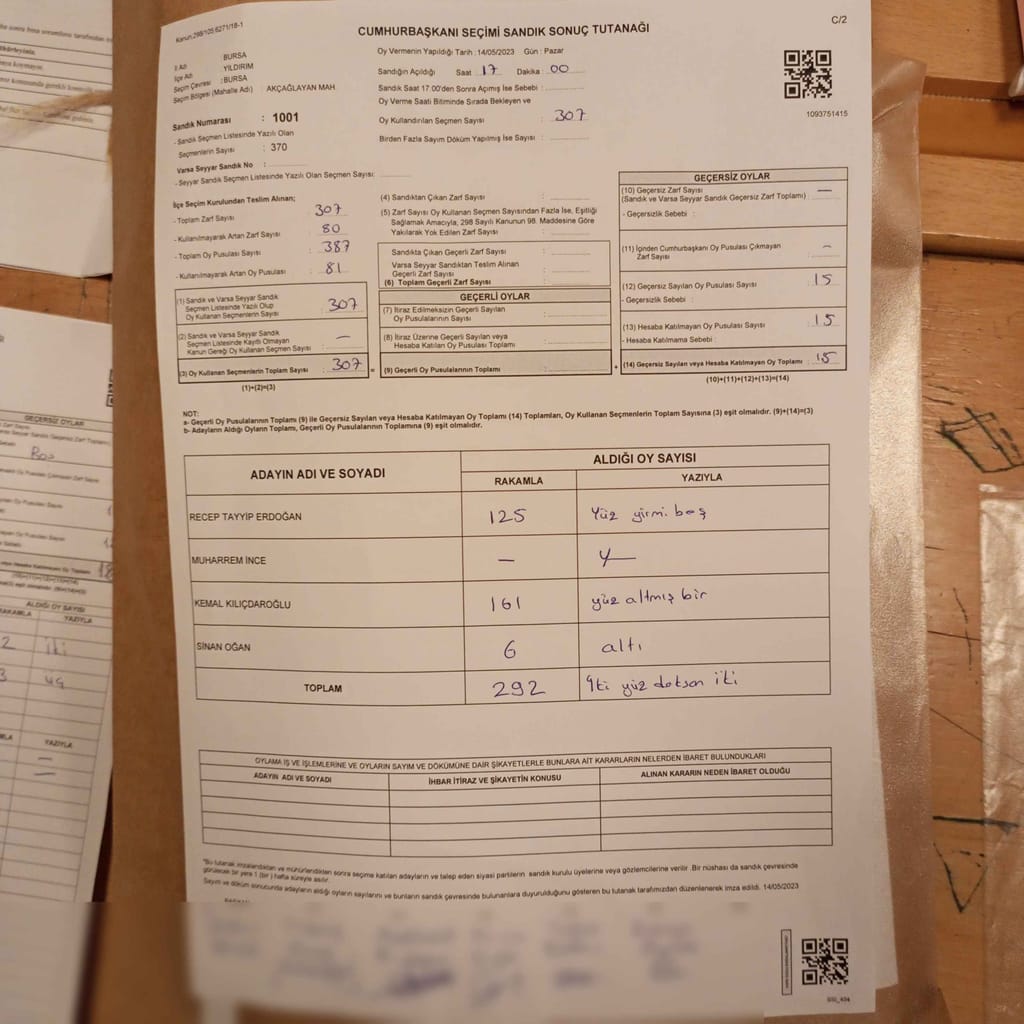 Kanun:298/105;6271/18-1
CUMHURBAŞKANI SEÇİMİ SANDIK SONUÇ TUTANAĞI
C/2
İl Adı : BURSA
İlçe Adı : YILDIRIM
Seçim Çevresi : BURSA
Seçim Bölgesi (Mahalle Adı) AKÇAĞLAYAN MAH.
Oy Vermenin Yapıldığı Tarih : 14/05/2023 Gün : Pazar
Sandığın Açıldığı Saat 17 Dakika : 00
Sandık Saat 17:00'den Sonra Açılmış İse Sebebi :
Oy Verme Saati Bitiminde Sırada Bekleyen ve
Oy Kullandırılan Seçmen Sayısı : 307
Birden Fazla Sayım Döküm Yapılmış İse Sayısı :
1093751415
Sandık Numarası : 1001
- Sandık Seçmen Listesinde Yazılı Olan
Seçmenlerin Sayısı : 370
Varsa Seyyar Sandık No :
- Seyyar Sandık Seçmen Listesinde Yazılı Olan Seçmen Sayısı:
İlçe Seçim Kurulundan Teslim Alınan;
- Toplam Zarf Sayısı : 307
- Kullanılmayarak Artan Zarf Sayısı : 80
- Toplam Oy Pusulası Sayısı : 387
- Kullanılmayarak Artan Oy Pusulası : 81
(1) Sandık ve Varsa Seyyar Sandık
Seçmen Listesinde Yazılı Olup
Oy Kullanan Seçmenlerin Sayısı : 307
(2) Sandık ve Varsa Seyyar Sandık
Seçmen Listesinde Kayıtlı Olmayan
Kanun Gereği Oy Kullanan Seçmen Sayısı : —
(3) Oy Kullanan Seçmenlerin Toplam Sayısı : 307 =
(1)+(2)=(3)
(4) Sandıktan Çıkan Zarf Sayısı :
(5) Zarf Sayısı Oy Kullanan Seçmen Sayısından Fazla İse, Eşitliği
Sağlamak Amacıyla, 298 Sayılı Kanunun 98. Maddesine Göre
Yakılarak Yok Edilen Zarf Sayısı :
Sandıkta Çıkan Geçerli Zarf Sayısı :
Varsa Seyyar Sandıktan Teslim Alınan
Geçerli Zarf Sayısı :
(6) Toplam Geçerli Zarf Sayısı :
GEÇERLİ OYLAR
(7) İtiraz Edilmeksizin Geçerli Sayılan
Oy Pusulalarının Sayısı :
(8) İtiraz Üzerine Geçerli Sayılan veya
Hesaba Katılan Oy Pusulası Toplamı :
(9) Geçerli Oy Pusulalarının Toplamı : +
GEÇERSİZ OYLAR
(10) Geçersiz Zarf Sayısı —
(Sandık ve Varsa Seyyar Sandık Geçersiz Zarf Toplamı) :
- Geçersizlik Sebebi :
(11) İçinden Cumhurbaşkanı Oy Pusulası Çıkmayan
Zarf Sayısı : —
(12) Geçersiz Sayılan Oy Pusulası Sayısı : 15
- Geçersizlik Sebebi :
(13) Hesaba Katılmayan Oy Pusulası Sayısı : 15
- Hesaba Katılmama Sebebi :
(14) Geçersiz Sayılan veya Hesaba Katılmayan Oy Toplamı : 15
(10)+(11)+(12)+(13)=(14)
NOT:
a- Geçerli Oy Pusulalarının Toplamı (9) ile Geçersiz Sayılan veya Hesaba Katılmayan Oy Toplamı (14) Toplamları, Oy Kullanan Seçmenlerin Toplam Sayısına (3) eşit olmalıdır. (9)+(14)=(3)
b- Adayların Aldığı Oyların Toplamı, Geçerli Oy Pusulalarının Toplamına (9) eşit olmalıdır.
ADAYIN ADI VE SOYADI
ALDIĞI OY SAYISI
RAKAMLA YAZIYLA
RECEP TAYYİP ERDOĞAN 125 Yüz yirmi beş
MUHARREM İNCE —
KEMAL KILIÇDAROĞLU 161 yüz altmış bir
SİNAN OĞAN 6 altı
TOPLAM 292 İki yüz doksan iki
OYLAMA İŞ VE İŞLEMLERİNE VE OYLARIN SAYIM VE DÖKÜMÜNE DAİR ŞİKAYETLERLE BUNLARA AİT KARARLARIN NELERDEN İBARET BULUNDUKLARI
ADAYIN ADI VE SOYADI İHBAR İTİRAZ VE ŞİKAYETİN KONUSU ALINAN KARARIN NEDEN İBARET OLDUĞU
"Bu tutanak imzalandıktan ve mühürlendikten sonra seçime katılan adayların ve talep eden siyasi partilerin sandık kurulu üyelerine veya gözlemcilerine verilir. Bir nüshası da sandık çevresinde
görülecek bir yere 1 (bir) hafta süreyle asılır.
Sayım ve döküm sonucunda adayların aldığı oyların sayılarını ve bunların sandık çevresinde bulunanlara duyurulduğunu gösteren bu tutanak tarafımızdan düzenlenerek imza edildi. 14/05/2023
GEÇERSİZ OYLAR
ALDIĞI OY SAYISI
YAZIYLA
2 iki
3 üç
YAZIYLA